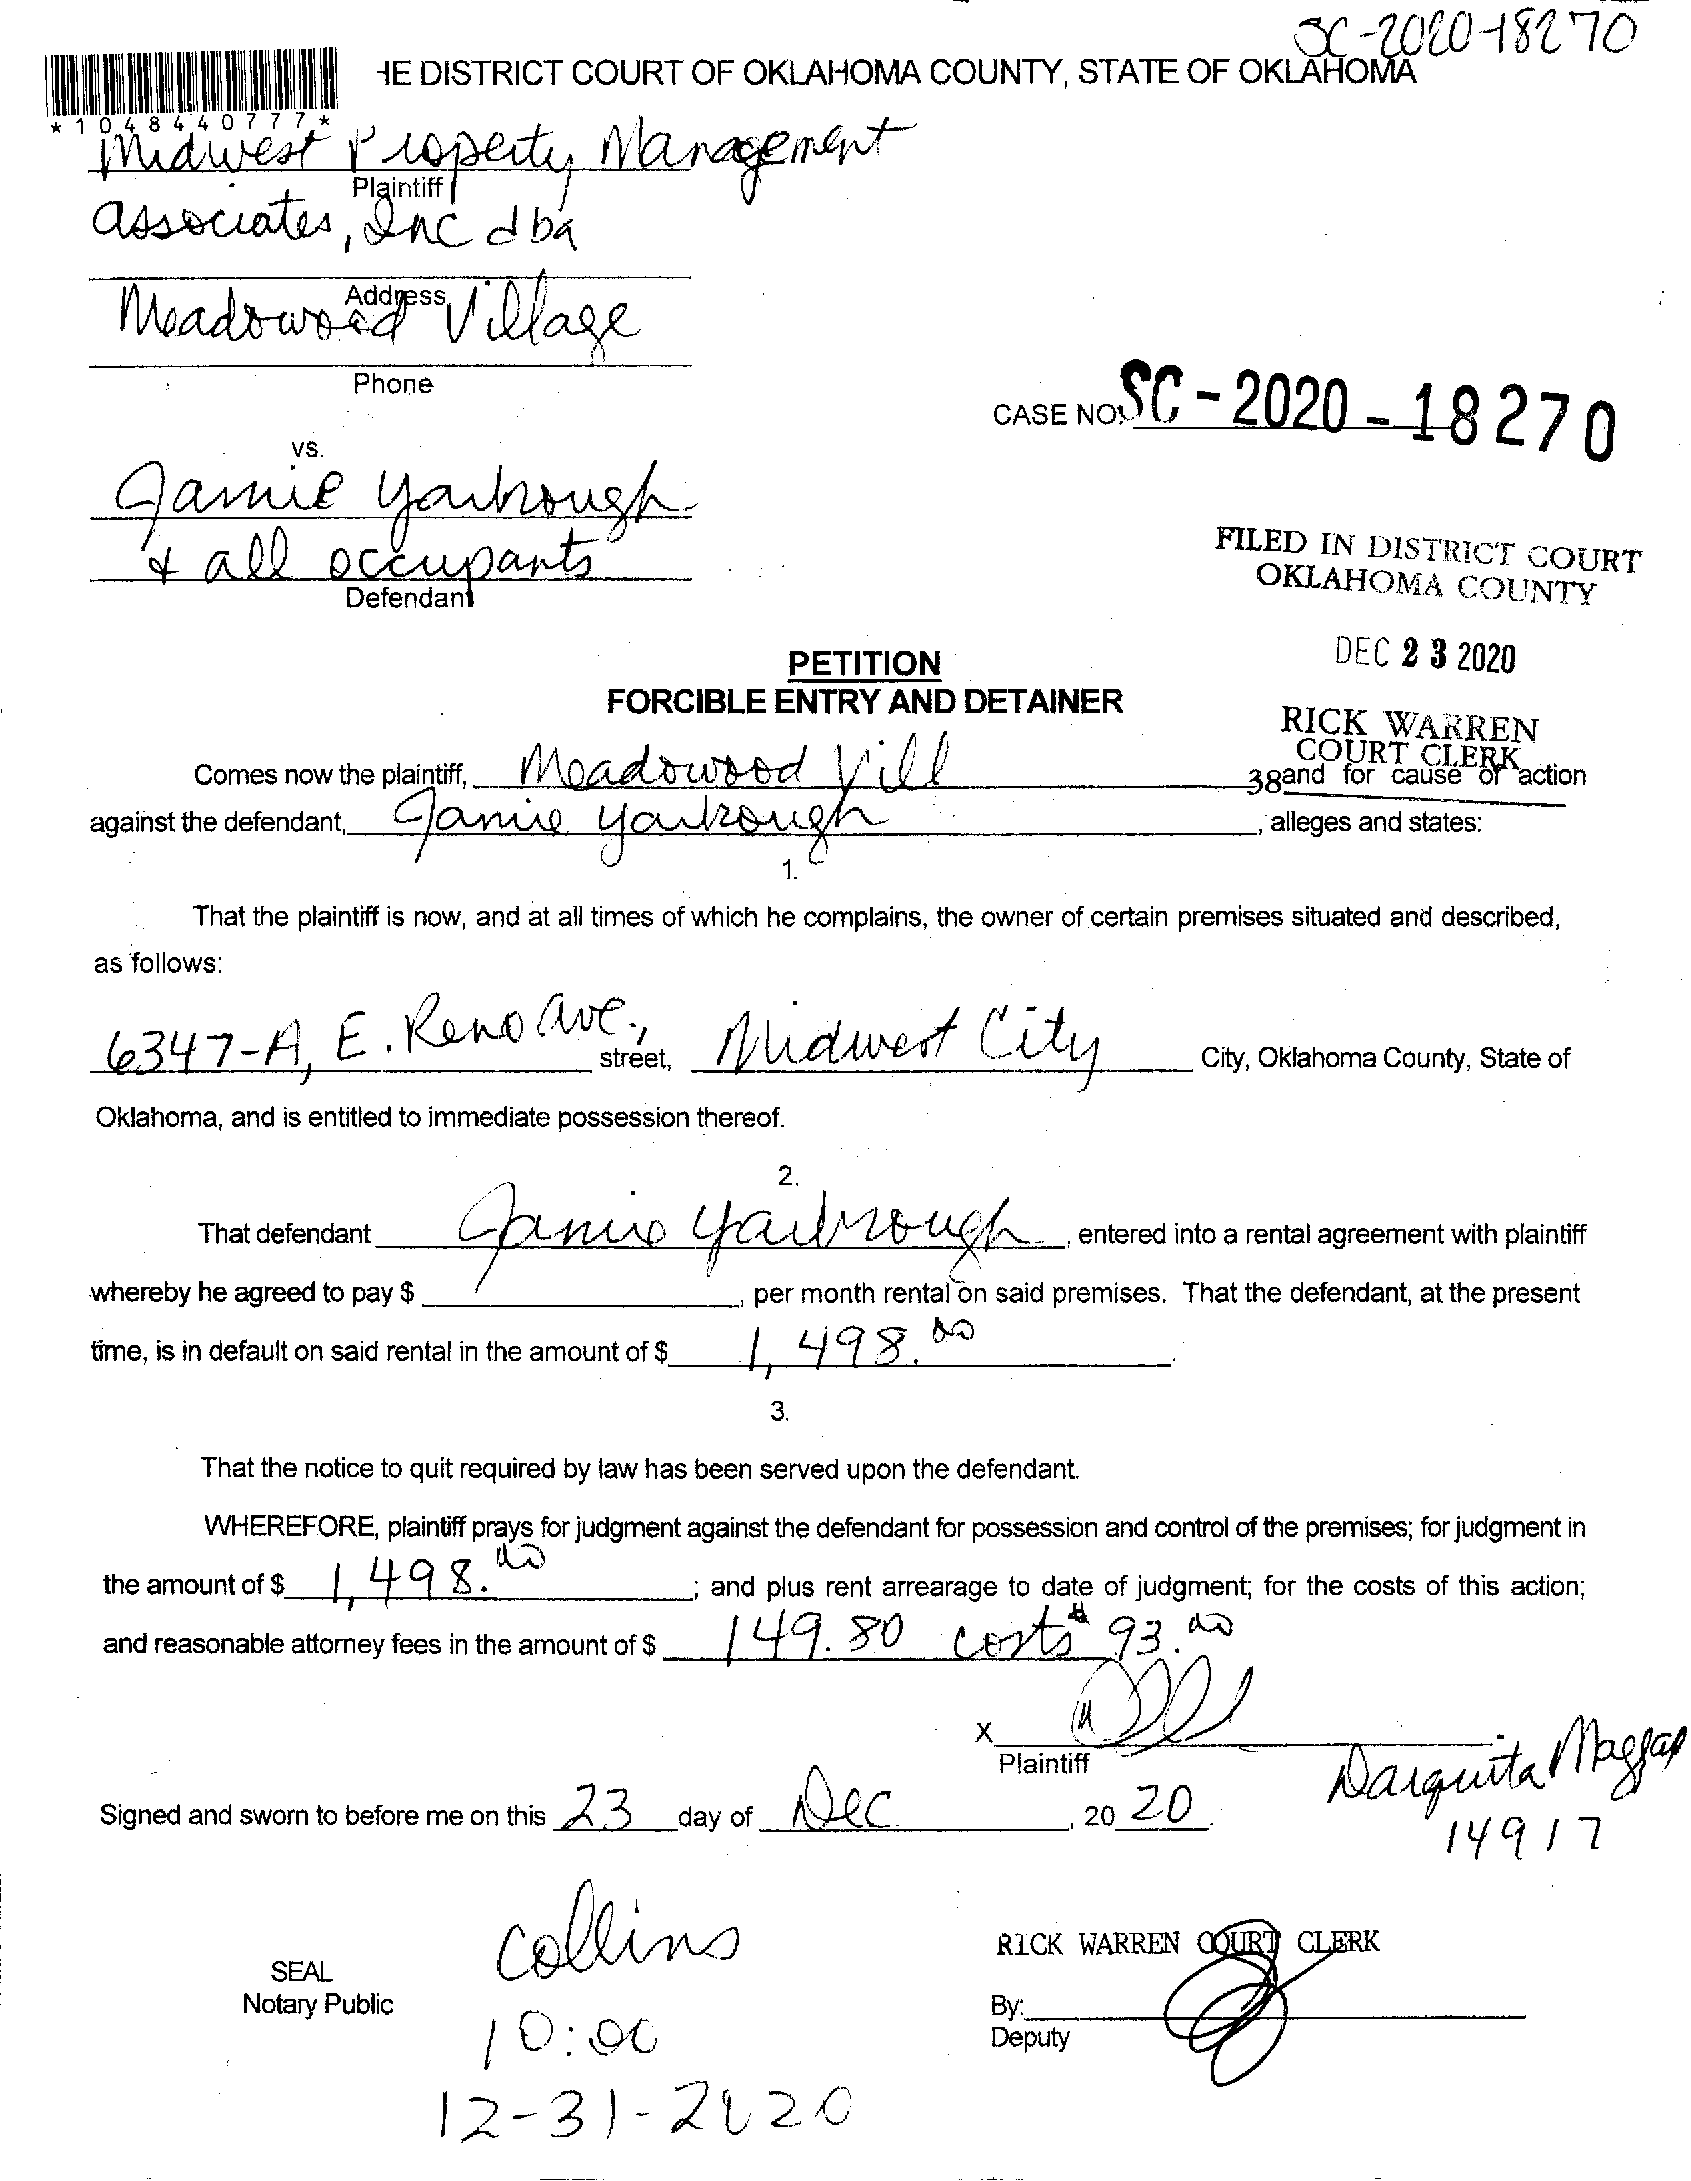 SC-2020-18270
HE DISTRICT COURT OF OKLAHOMA COUNTY, STATE OF OKLAHOMA
*1048440777*
Midwest Property Management
Plaintiff
Associates, Inc dba
Address
Meadowood Village
Phone
CASE NO. SC-2020-18270
vs.
Jamie Yarbrough
& all occupants
Defendant
FILED IN DISTRICT COURT
OKLAHOMA COUNTY
DEC 23 2020
RICK WARREN
COURT CLERK
38
PETITION
FORCIBLE ENTRY AND DETAINER
Comes now the plaintiff, Meadowood Vill and for cause of action
against the defendant, Jamie Yarbrough, alleges and states:
1.
That the plaintiff is now, and at all times of which he complains, the owner of certain premises situated and described,
as follows:
6347-A, E. Reno Ave., street, Midwest City City, Oklahoma County, State of
Oklahoma, and is entitled to immediate possession thereof.
2.
That defendant Jamie Yarbrough, entered into a rental agreement with plaintiff
whereby he agreed to pay $ , per month rental on said premises. That the defendant, at the present
time, is in default on said rental in the amount of $ 1,498.00.
3.
That the notice to quit required by law has been served upon the defendant.
WHEREFORE, plaintiff prays for judgment against the defendant for possession and control of the premises; for judgment in
the amount of $ 1,498.00; and plus rent arrearage to date of judgment; for the costs of this action;
and reasonable attorney fees in the amount of $ 149.80 costs $93.00
X
Plaintiff
Darquita
14917
Signed and sworn to before me on this 23 day of Dec, 20 20.
Collins
10:00
12-31-2020
SEAL
Notary Public
RICK WARREN COURT CLERK
By:
Deputy